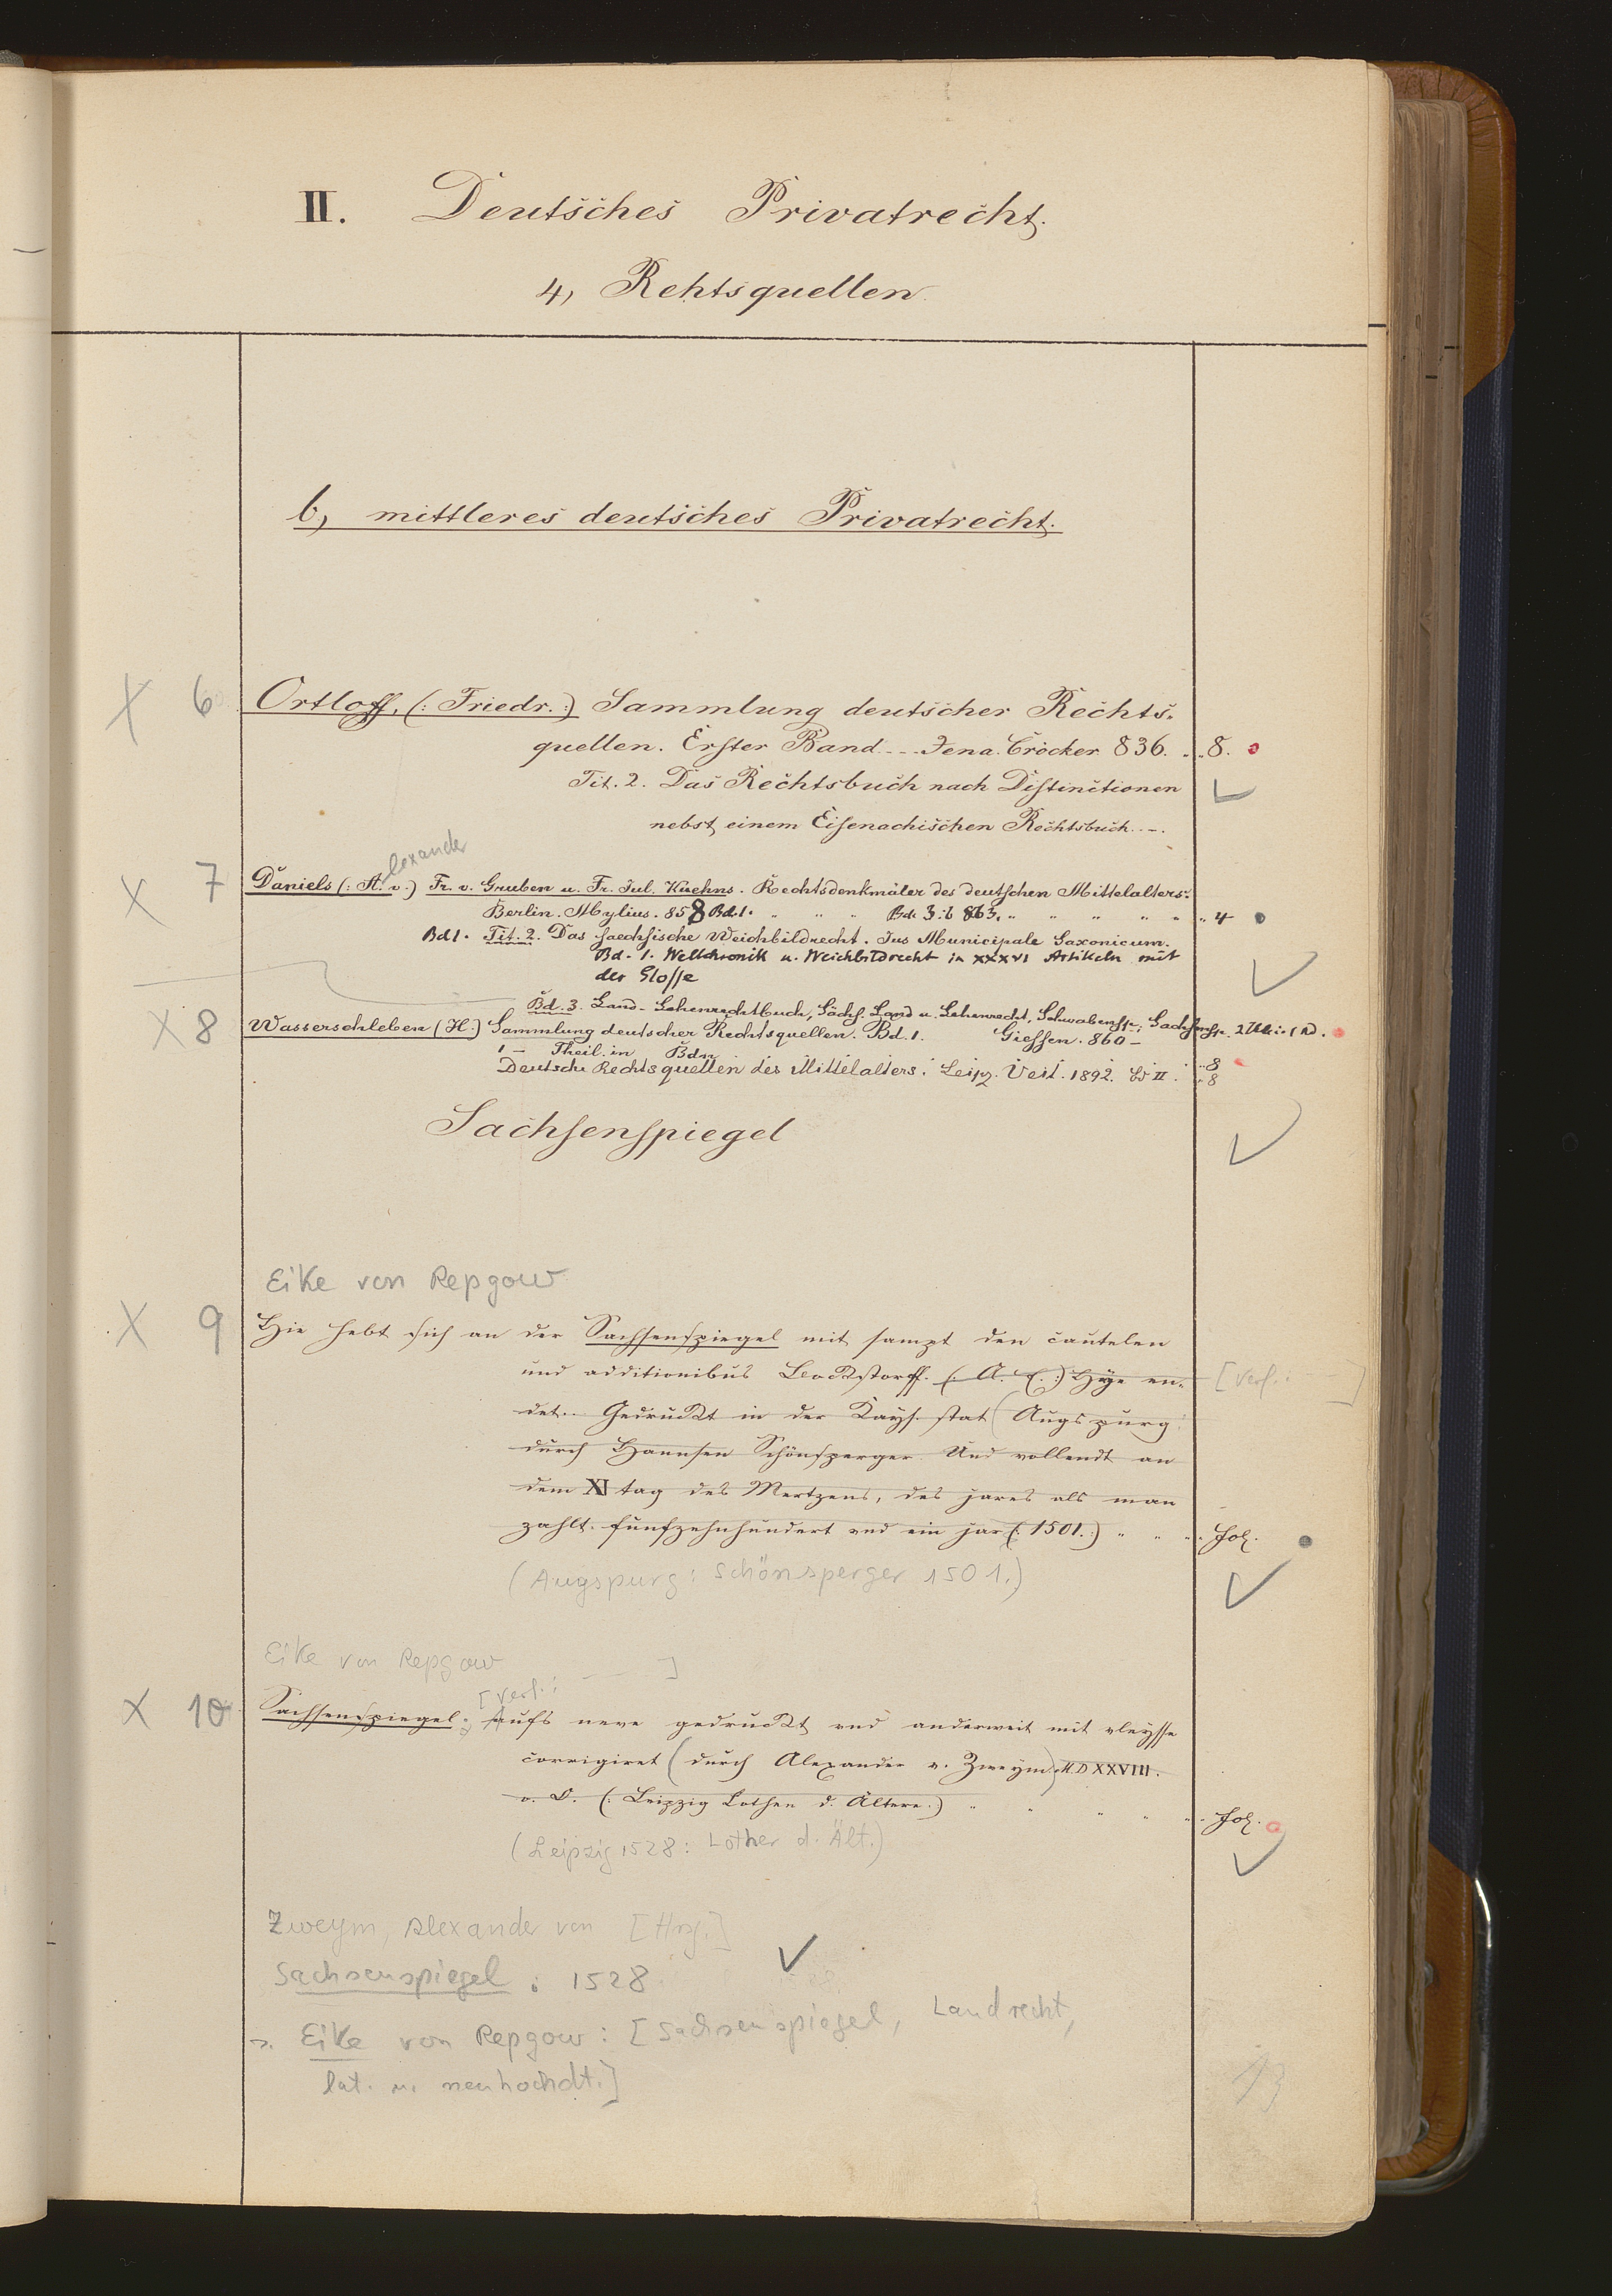 II. Deutsches Privatrecht.
4, Rehtsquellen.
b, mittleres deutsches Privatrecht.
X 6 Ortloff, (: Friedr. :) Sammlung deutscher Rechts-
quellen. Erster Band... Jena. Cröcker 836. 8.
Tit. 2. Das Rechtsbuch nach Distinctionen
nebst einem Eisenachischen Rechtsbuch.
lexander
X 7 Daniels (: A. v.) Fr. v. Gruben u. Fr. Jul. Kuehns. Rechtsdenkmäler des deutschen Mittelalters.
Berlin. Mylius. 858 Bd. 1. " " " Bd. 3. 863. " " " " " 4
Bd 1. Tit. 2. Das saechsische Weichbildrecht. Jus Municipale Saxonicum.
Bd. 1. Weltchronik u. Weichbildrecht in XXXVI Artikeln mit
der Glosse
Bd. 3. Land- Lehenrechtbuch, Sächs. Land u. Lehenrecht, Schwabensp., Sachsensp.
X 8 Wasserschleben (H.) Sammlung deutscher Rechtsquellen. Bd. 1. Giessen. 860 -
1 - Theil. in Bdn 8
Deutsche Rechtsquellen des Mittelalters. Leipz. Veit. 1892. Bd II. 8
Sachsenspiegel
Eike von Repgow
X 9 Hie hebt sich an der Sachsenspiegel mit sampt den cautelen
und additionibus Bockstorff. (: A. C. :) Hye en- [Verf.: — ]
det.. Gedruckt in der Kays. stat (Augspurg
durch Hannsen Schönsperger. Und vollendt an
dem XI tag des Mertzens, des jares als man
zahlt. funfzehnhundert und ein jar (: 1501. :) " " " fol.
(Augspurg: Schönsperger 1501.)
Eike von Repgow
[Verf.: — ]
X 10 Sachsenspiegel: Aufs neve gedruckt und anderweit mit vleysse
corrigiret (durch Alexander v. Zweym) M.D XXVIII.
o. O. (: Leipzig Lothen d. Ältere.) " " " " " fol.
(Leipzig 1528: Lother d. Ält.)
Zweym, Alexander von [Hrsg.]
Sachsenspiegel : 1528
s. Eike von Repgow: [Sachsenspiegel, Landrecht,
lat. u. neuhochdt.]
13